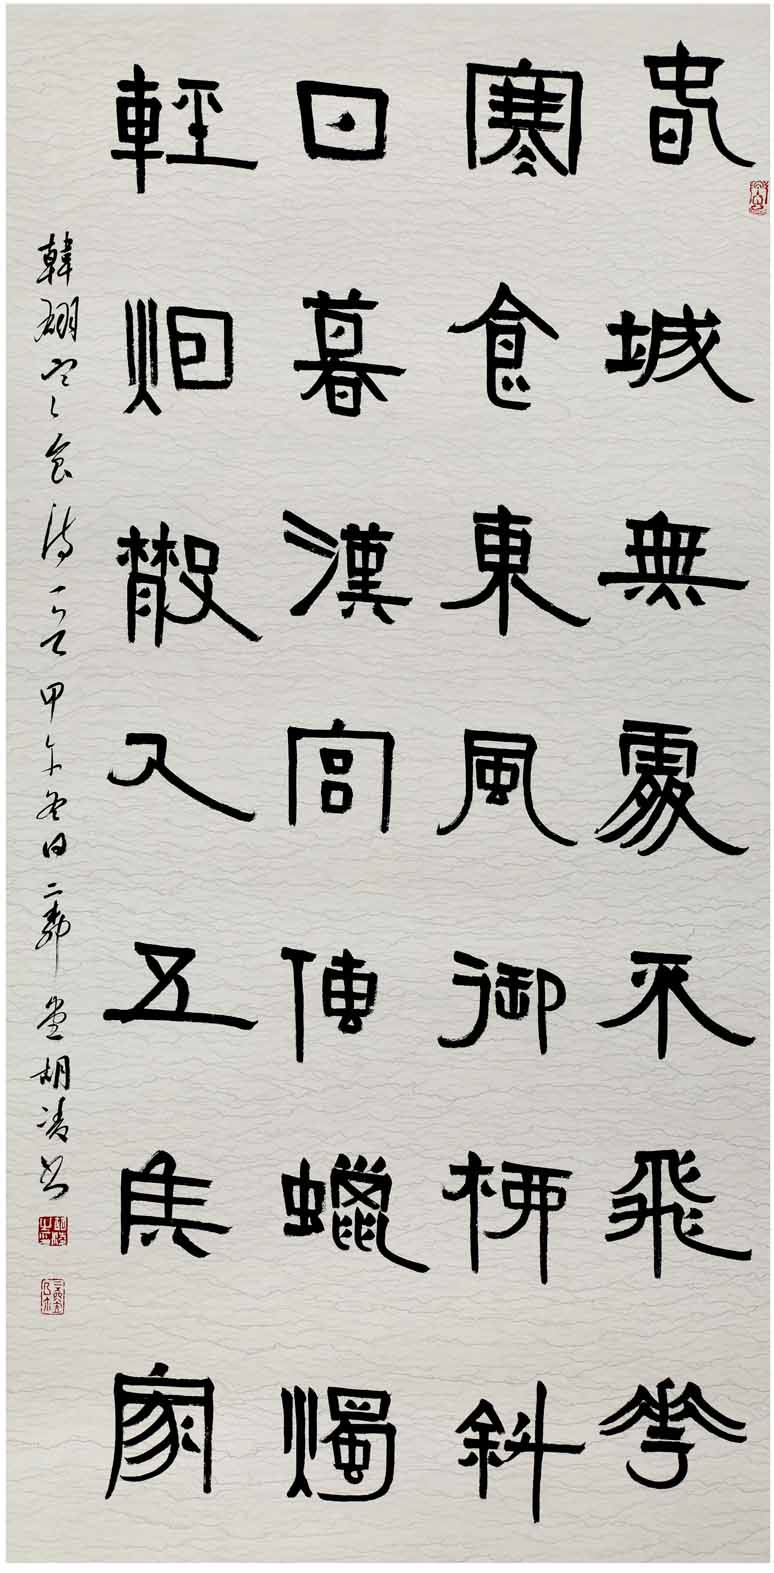 春城無處不飛花
寒食東風御柳斜
日暮漢宮傳蠟燭
輕烟散入五矦家
韓翃寒食詩一首甲午冬日二堂胡凌書